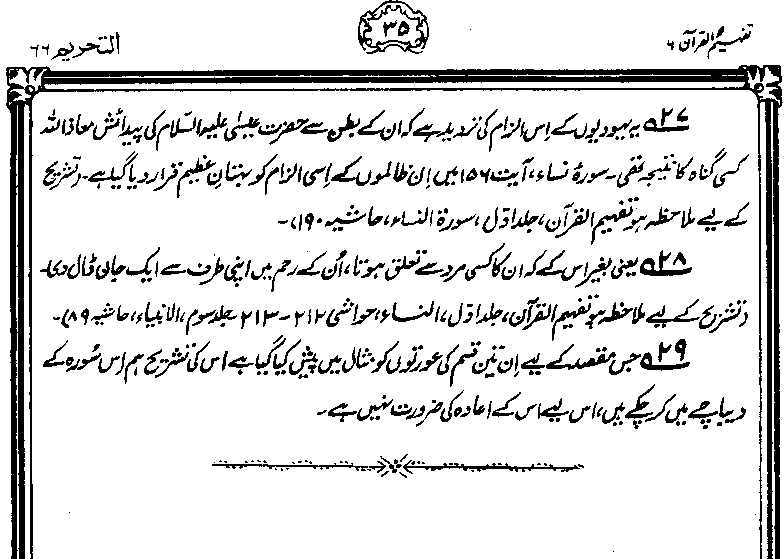 تفہیم القرآن ۶
۳۵
التحریم ۶۶
۲۷؎ یہ یہودیوں کے اِس الزام کی تردید ہے کہ ان کے بطن سے حضرت عیسیٰ علیہ السّلام کی پیدائش معاذ اللہ
کسی گناہ کا نتیجہ تھی۔ سورۂ نساء، آیت ۱۵۶ میں اِن ظالموں کے اِسی الزام کو بہتانِ عظیم قرار دیا گیا ہے۔ (تشریح
کے لیے ملاحظہ ہو تفہیم القرآن، جلد اوّل، سورۃ النساء، حاشیہ ۱۹۰)۔
۲۸؎ یعنی بغیر اس کے کہ ان کا کسی مرد سے تعلق ہوتا، اُن کے رحم میں اپنی طرف سے ایک جان ڈال دی۔
(تشریح کے لیے ملاحظہ ہو تفہیم القرآن، جلد اوّل، النساء، حواشی ۲۱۲-۲۱۳۔ جلد سوم، الانبیاء، حاشیہ ۸۹)۔
۲۹؎ جس مقصد کے لیے اِن تین قسم کی عورتوں کو مثال میں پیش کیا گیا ہے اس کی تشریح ہم اِس سُورہ کے
دیباچے میں کر چکے ہیں، اس لیے اس کے اعادہ کی ضرورت نہیں ہے۔